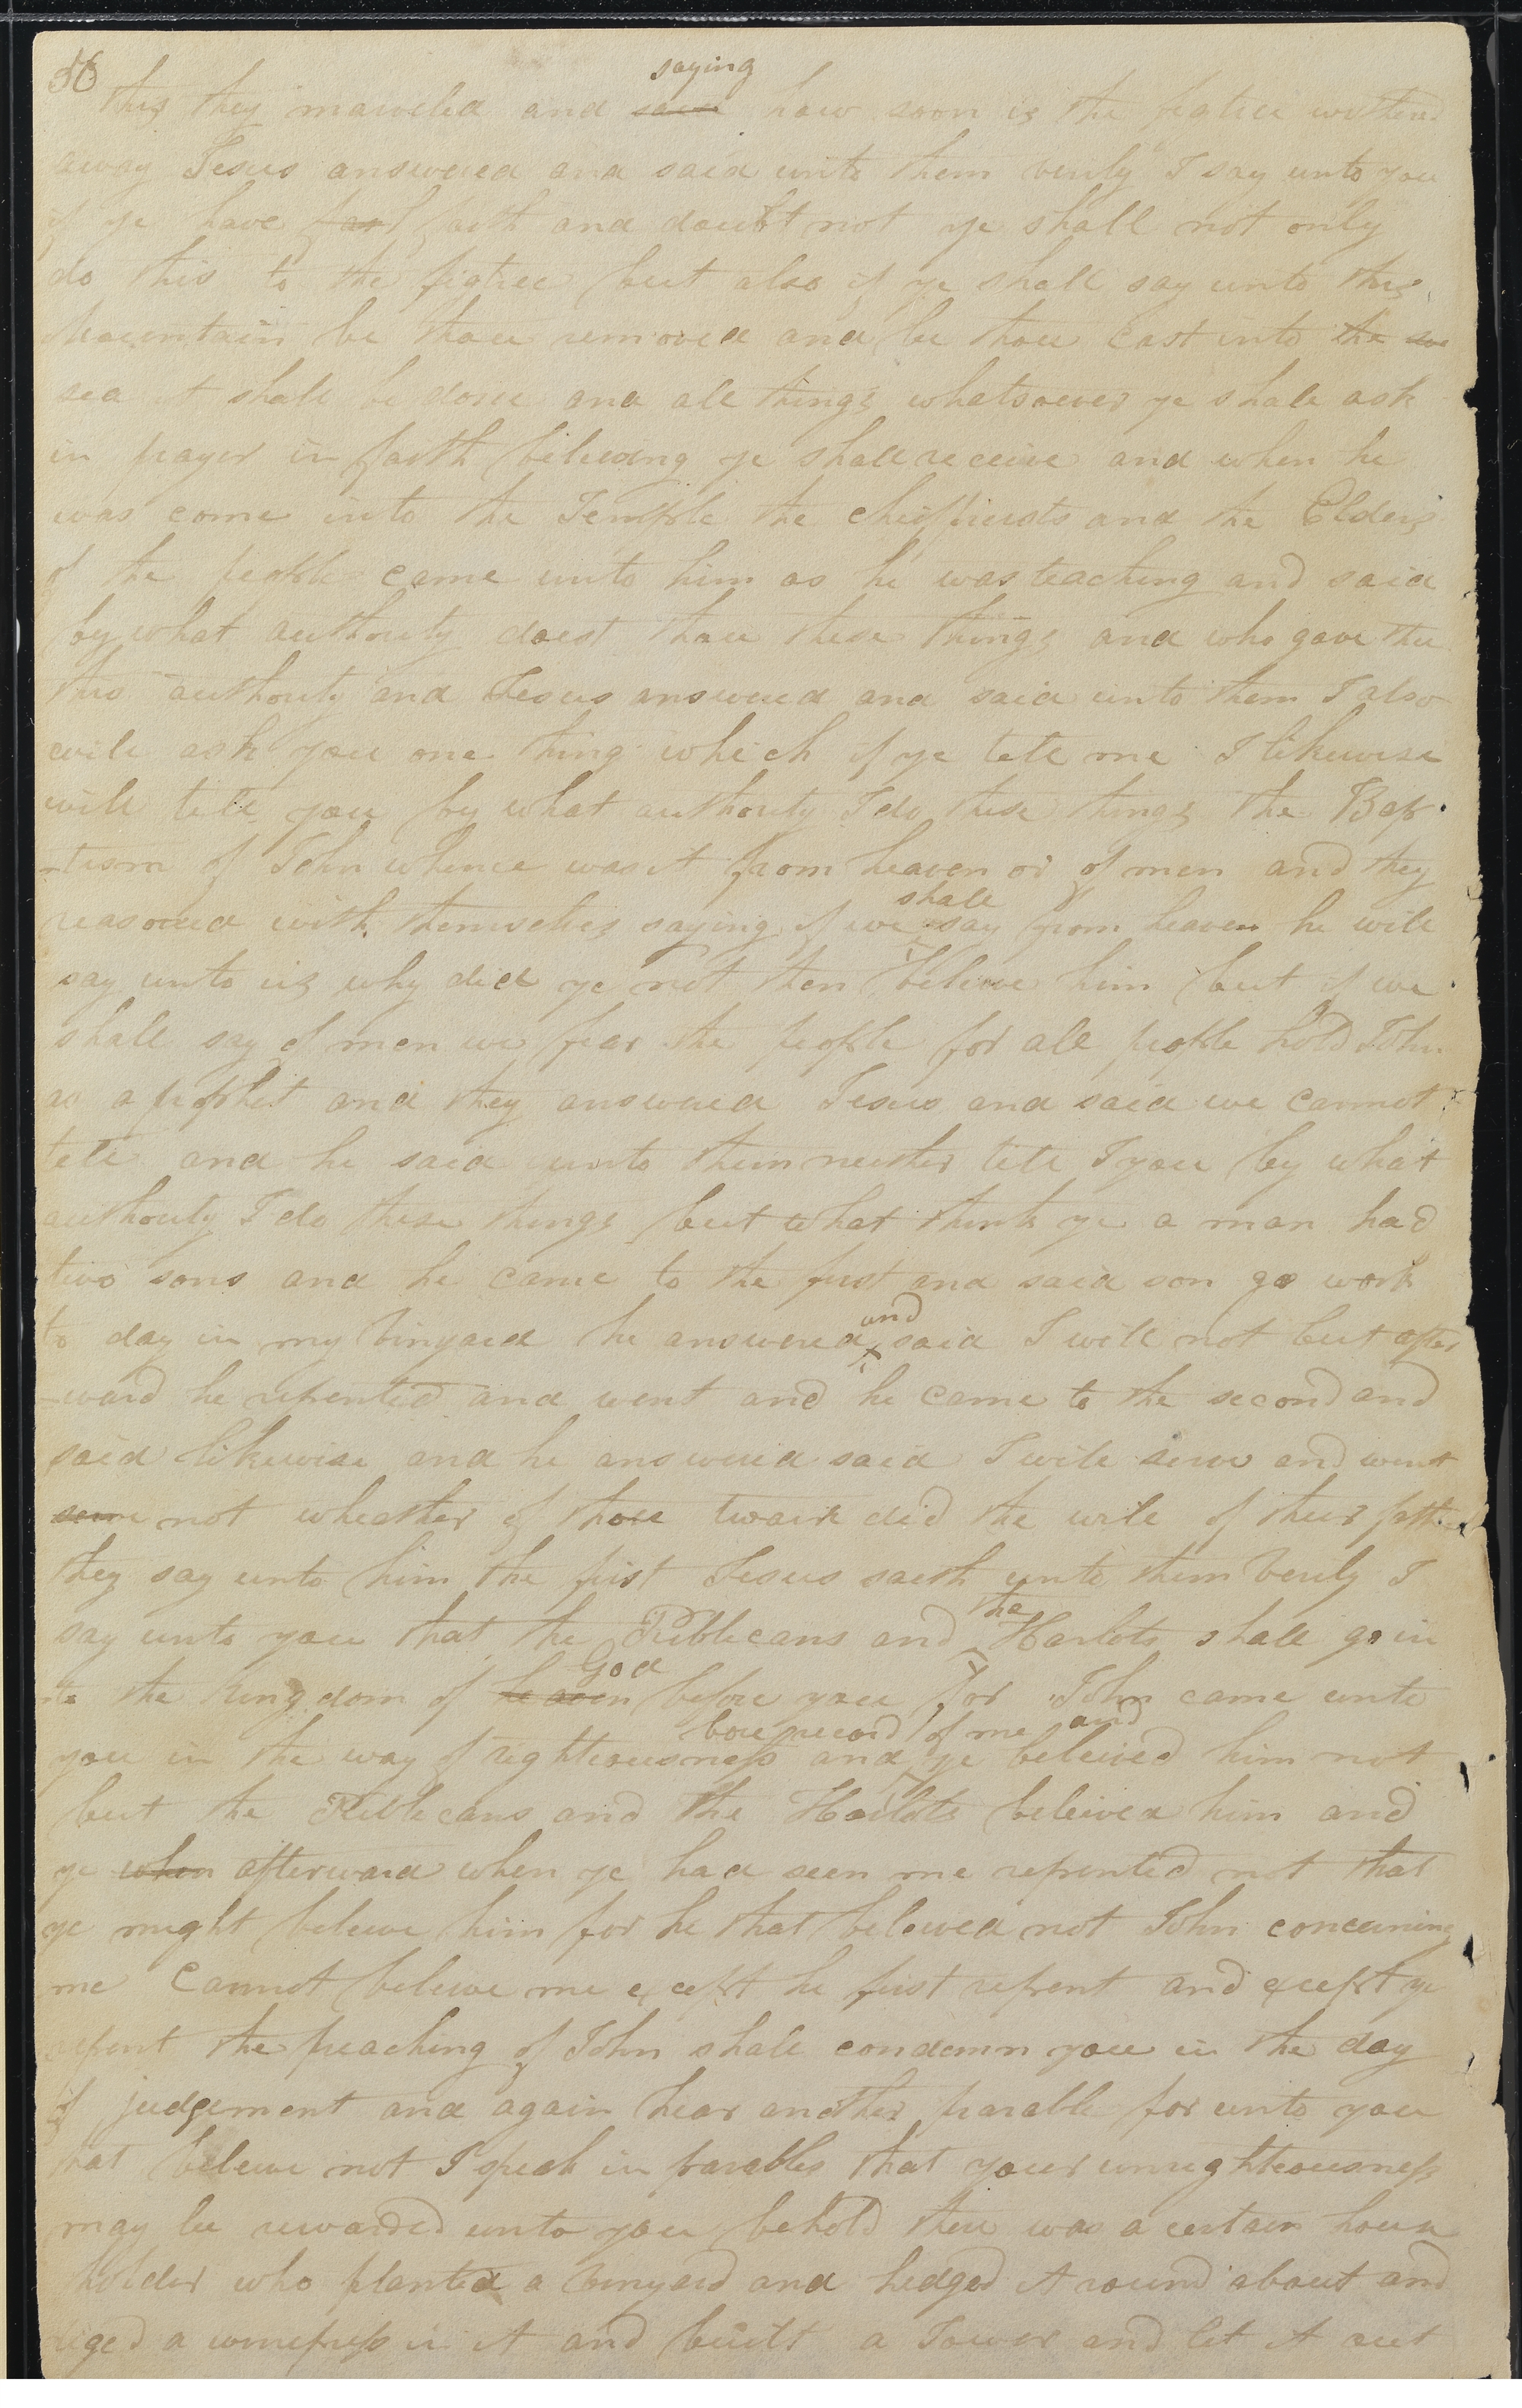 56
this they marveled and said saying how soon is the figtree withered
away Jesus answered and said unto them verily I say unto you
if ye have faith and doubt not ye shall not only
do this to the figtree but also if ye shall say unto this
Mountain be thou removed and be thou cast into the sea
sea it shall be done and all things whatsoever ye shall ask
in prayer in faith beleiving ye shall receive and when he
was come into the Temple the chiefpriests and the Elders
of the people came unto him as he was teaching and said
by what authority doest thou these things and who gave thee
this authority and Jesus answered and said unto them I also
will ask you one thing which if ye tell me I likewise
will tell you by what authority I do these things the Bap
-tism of John whence was it from heaven or of men and they
reasoned with themselves saying if we shall say from heaven he will
say unto us why did ye not then beleive him but if we
shall say of men we fear the people for all people hold John
as a prophet and they answered Jesus and said we cannot
tell and he said unto them neither tell I you by what
authority I do these things but what think ye a man had
two sons and he came to the first and said son go work
to day in my vinyard he answered and said I will not but after
-ward he repented and went and he came to the second and
said likewise and he answered said I will serve and went
serve not wheather of those twain did the will of their father
they say unto him the first Jesus saith unto them Verily I
say unto you that the Publicans and the Harlots shall go in
to the kingdom of heaven God before you for John came unto
you in the way of righteousness and bore record of me and ye beleived him not
but the Publicans and the Harlots beleived him and
ye when afterward when ye had seen me repented not that
ye might beleive him for he that beleived not John concerning
me cannot beleive me except he first repent and except ye
repent the preaching of John shall condemn you in the day
of judgement and again hear another parable for unto you
that beleive not I speak in parables that your unrighteousness
may be rewarded unto you behold there was a certain house
holder who planted a vinyard and hedged it round about and
diged a winepress in it and built a Tower and let it out